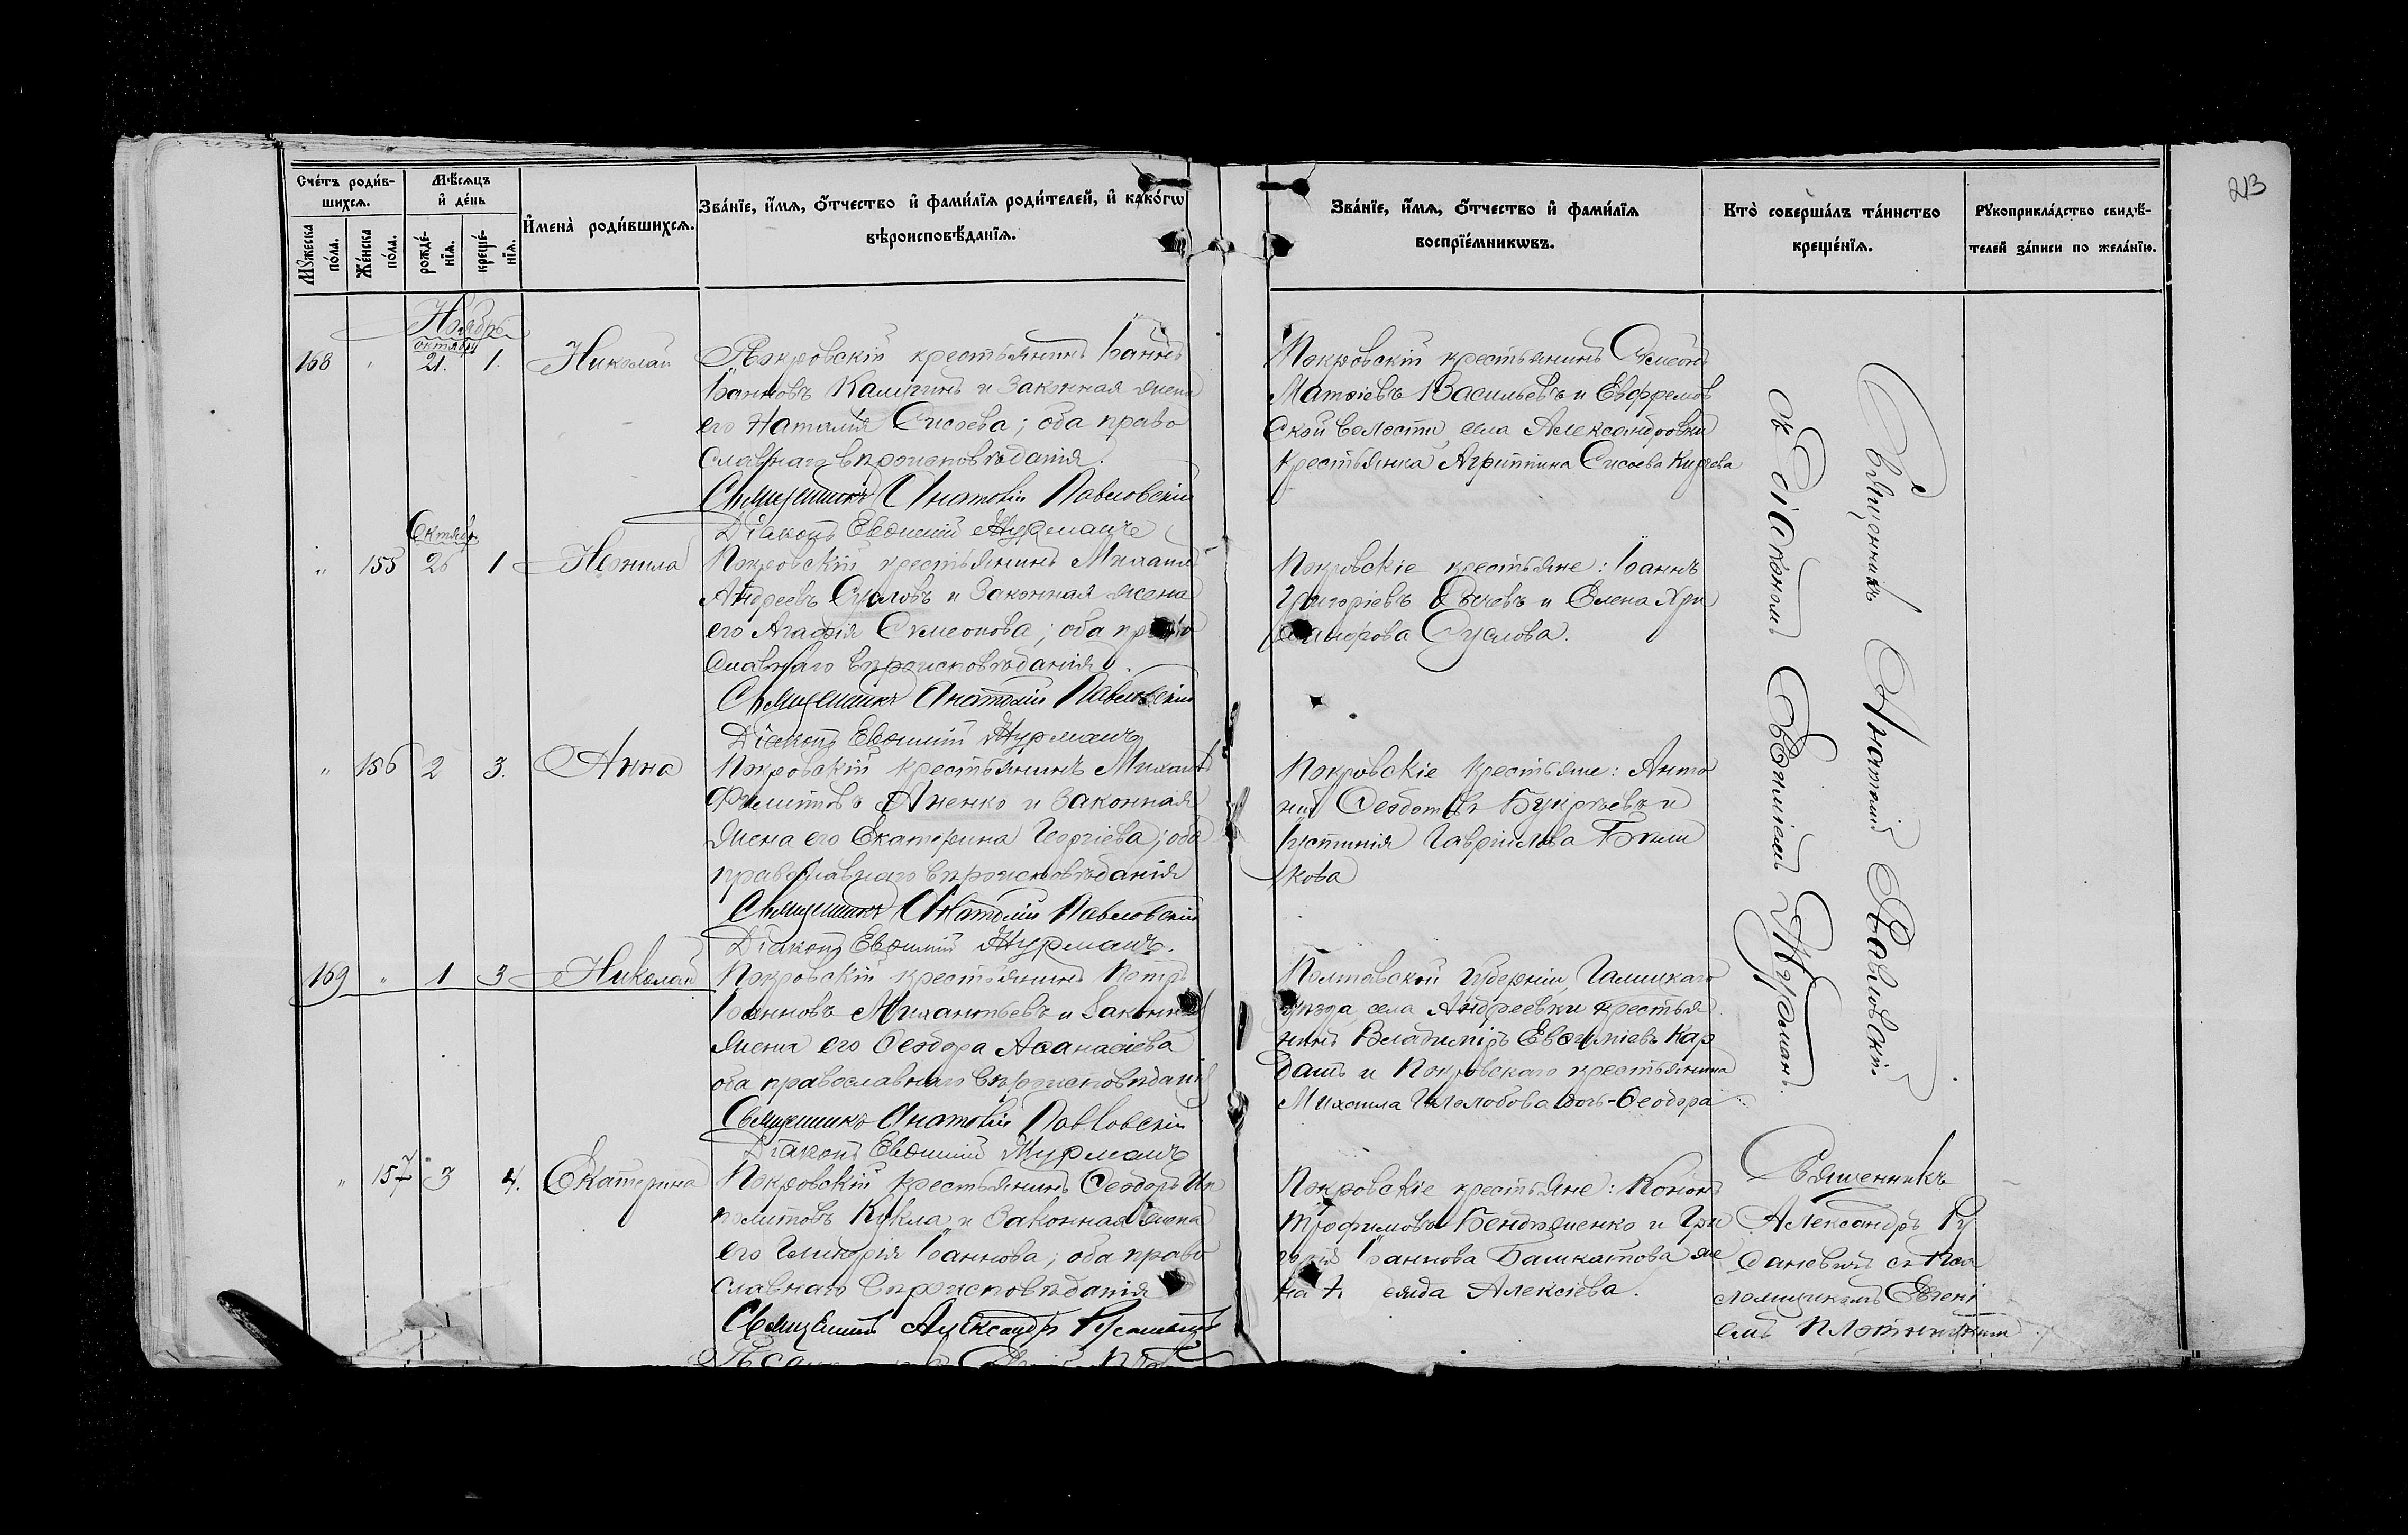 213
Счетъ родив-
шихся.
Мѣсяцъ
и день
Мужеска
пола.
Женска
пола.
рожде-
нія.
креще-
нія.
Имена родившихся.
Званіе, имя, отчество и фамилія родителей, и какого
вѣроисповѣданія.
Званіе, имя, отчество и фамилія
воспріемниковъ.
Кто совершалъ таинство
крещенія.
Рукоприкладство свидѣ-
телей записи по желанію.
Ноябрь
октября
168 " 21. 1. Николай
Покровскій крестьянинъ Іоаннъ
Іоанновъ Калугинъ и законная жена
его Наталія Сисоева; оба право
славнаго вѣроисповѣданія.
Священникъ Анатолій Павловскій
Діаконъ Евѳимій Журманъ
Покровскій крестьянинъ Симеонъ
Матѳіевъ Васильевъ и Евфремов
ской волости, села Александровки
крестьянка Агриппина Сисоева
Октябр.
" 155 26 1 Неонила
Покровскій крестьянинъ Михаилъ
Андреевъ Сусловъ и законная жена
его Агафія Симеонова; оба право
славнаго вѣроисповѣданія.
Священникъ Анатолій Павловскій
Діаконъ Евѳимій Журманъ
Покровскіе крестьяне: Іоаннъ
Григоріевъ и Елена
Суслова.
" 156 2 3. Анна
Покровскій крестьянинъ Михаилъ
Филиповъ и законная
жена его Екатерина Георгіева; оба
православнаго вѣроисповѣданія
Священникъ Анатолій Павловскій
Діаконъ Евѳимій Журманъ.
Покровскіе крестьяне: Анто
ній Ѳеодотовъ Букрѣевъ и
Іустинія Гавріилова
кова
169 " 1 3 Николай
Покровскій крестьянинъ Петръ
Іоанновъ и законная
жена его Ѳеодора Аѳанасіева
оба православнаго вѣроисповѣданія
Священникъ Анатолій Павловскій
Діаконъ Евѳимій Журманъ
Полтавской губерніи,
уѣзда, села Андреевки крестья
нинъ Владиміръ Евѳиміевъ Кар
дашъ и Покровскаго крестьянина
Михаила дочь Ѳеодора
Священникъ Анатолій Павловскій
съ діакономъ Евѳиміемъ Журманъ.
" 157 3 4. Екатерина
Покровскій крестьянинъ Ѳеодоръ Ип
политовъ Кукла и законная жена
его Гликерія Іоаннова; оба право
славнаго вѣроисповѣданія
Священникъ Александръ
Покровскіе крестьяне: Кононъ
Трофимовъ и
Іоаннова Башкатова же
на Алексіева.
Священникъ
Александръ Ру
даневичъ съ пса
ломщикомъ Евгені
емъ